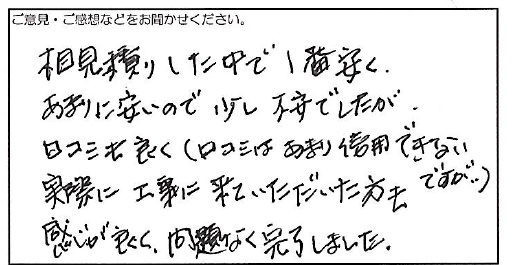 ご意見・ご感想などをお聞かせください。
相見積りした中で1番安く、
あまりに安いので少し不安でしたが、
口コミも良く(口コミはあまり信用できない
ですが…)
実際に工事に来ていただいた方も
感じが良く、問題なく完了しました。